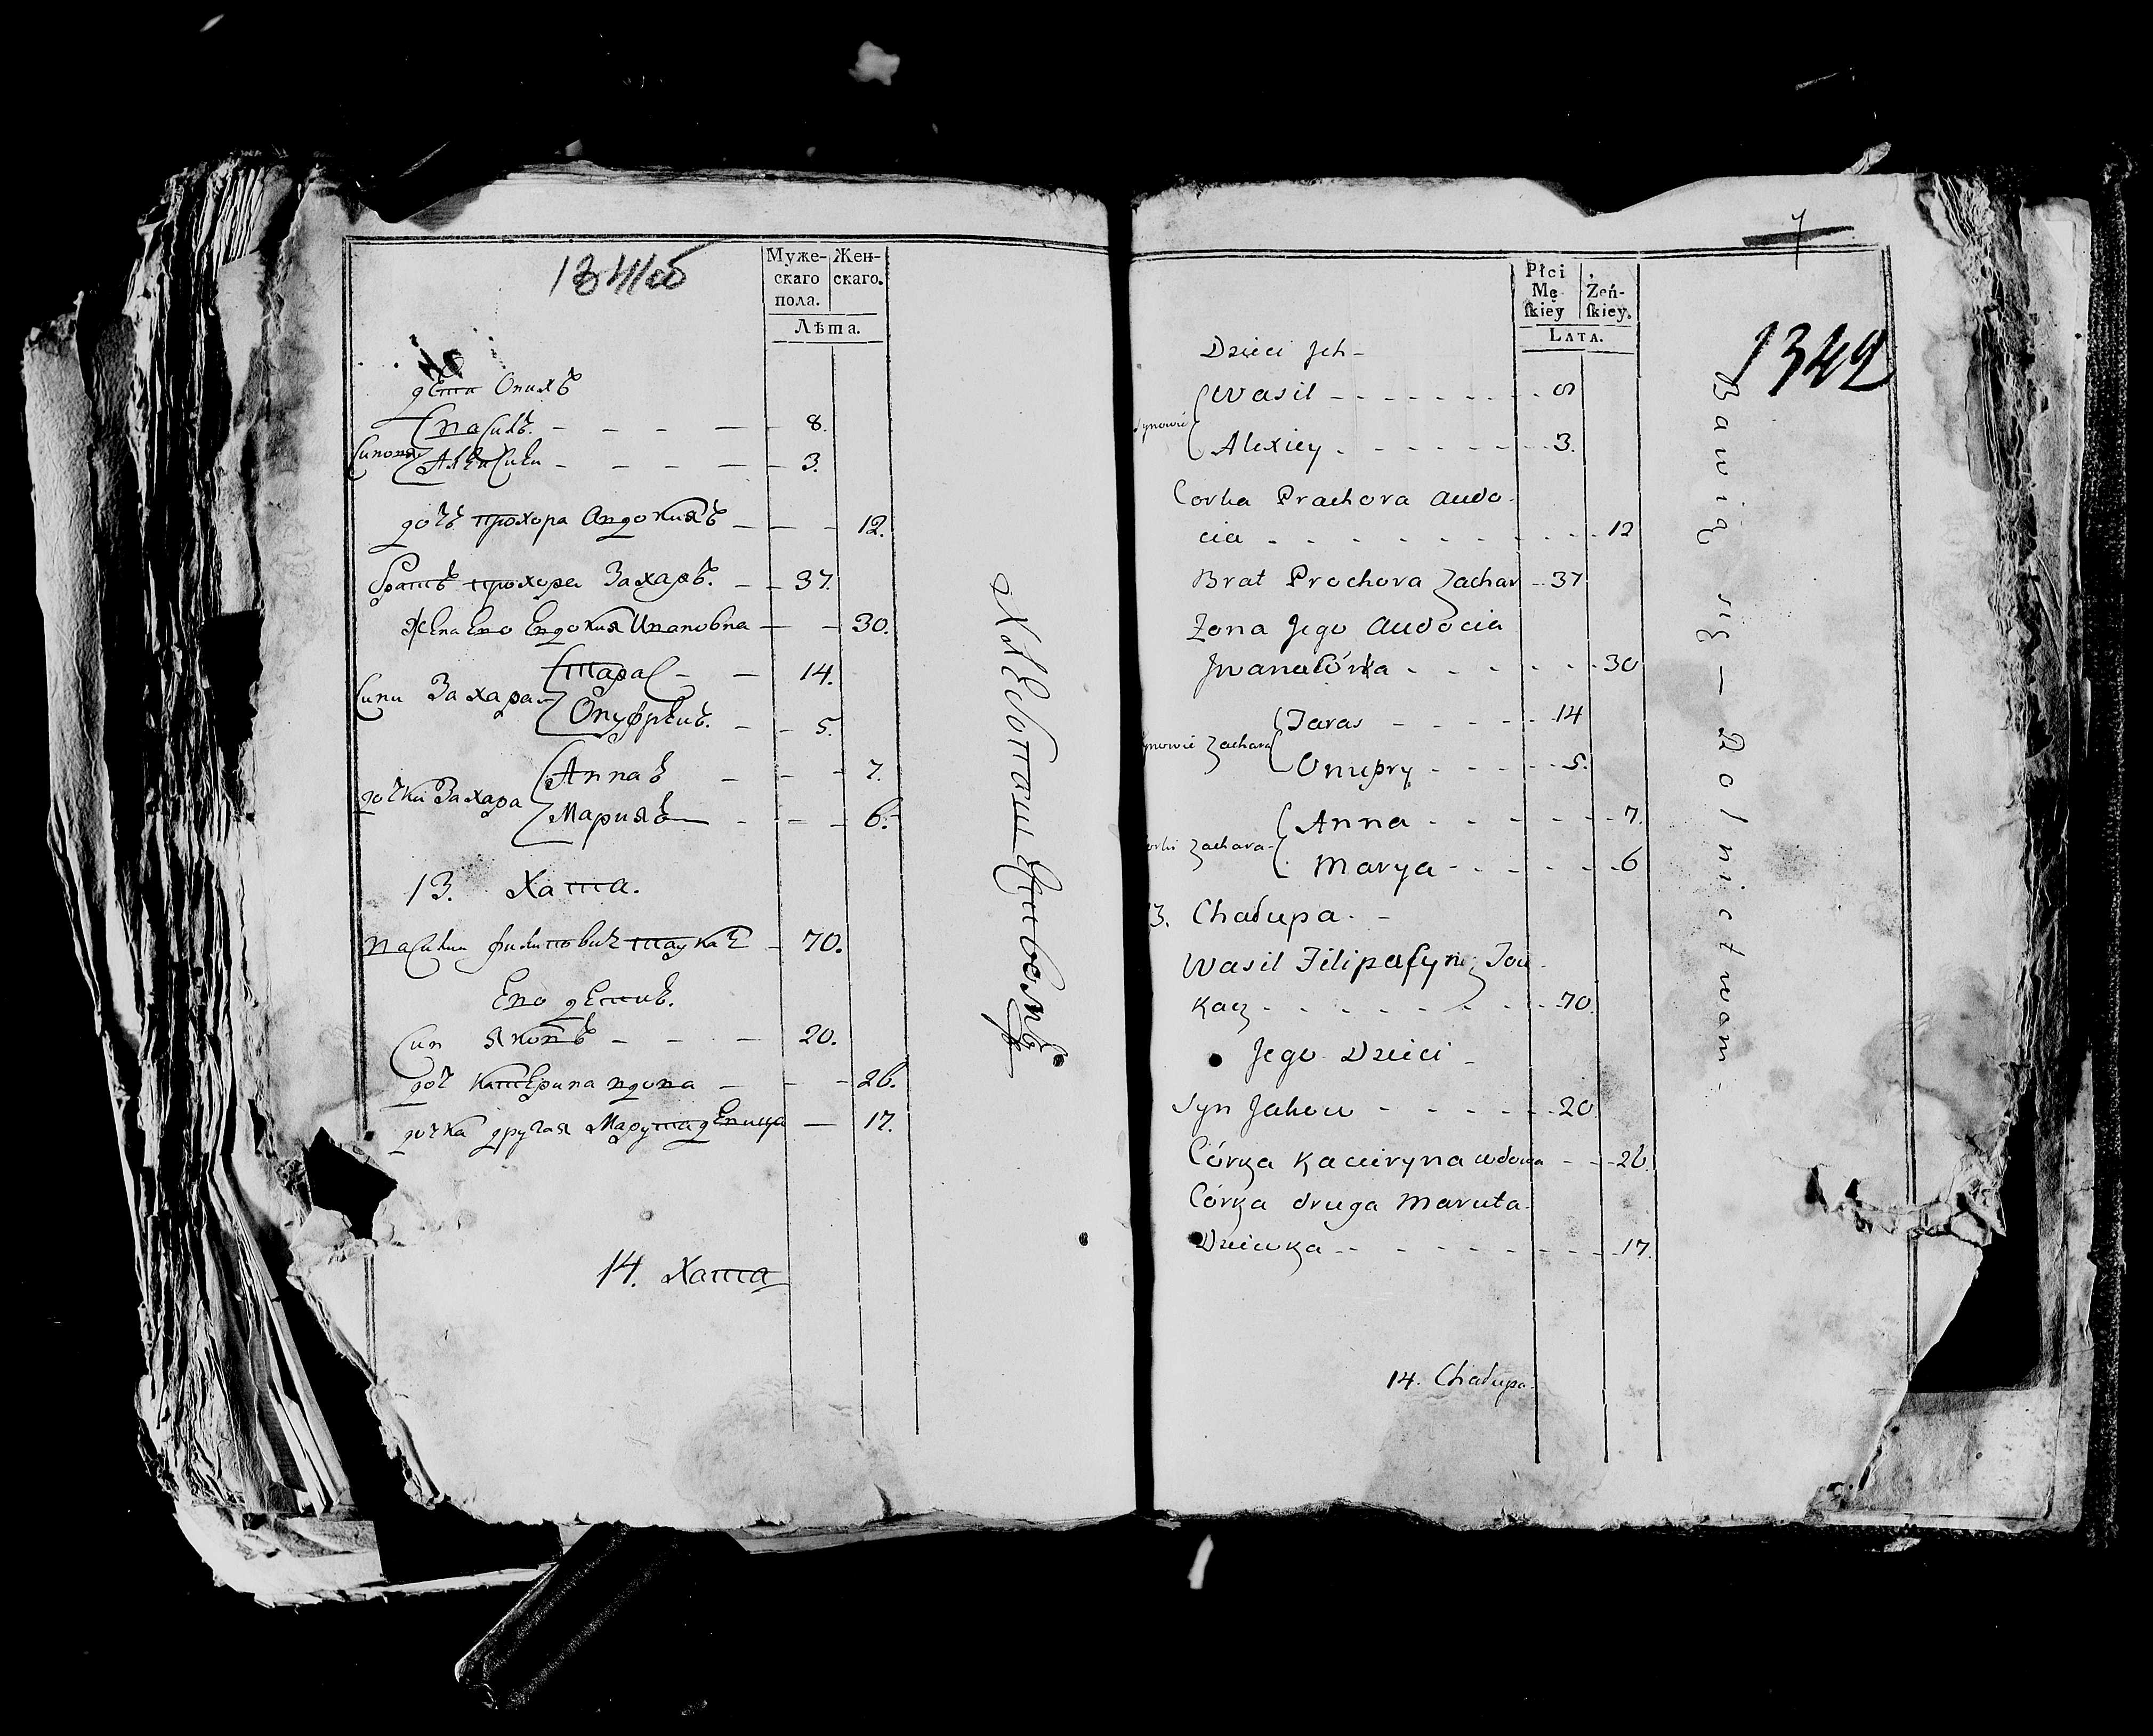 1341об
Муже-
скаго
пола.
Жен-
скаго.
Лѣта.
дети Онихъ
Синови
Василъ. 8.
Алексѣй 3.
дочъ прохора Овдокияъ 12.
братъ прохора Захаръ. 37.
жена Ево Евдокия Ивановна 30.
Сини Захара
Тарас 14.
Онуфрѣй. 5.
дочки Захара
Аннаъ 7.
Марияъ 6.
13. Хата.
Василий филиповичъ 70.
Ево дети.
Син яковъ 20.
доч катерина вдова 26.
дочка другая Марута девица 17.
14. Хата
Płci
Mę
ſkiey
Żeń-
ſkiey.
Lata.
7
1342
Dzieci Jch
Synowie
Wasil 8
Alexiey 3.
Corka Prachora Audo
cia 12
Brat Prochora Zachar 37
Żona Jego Audocia
Jwanałówka 30
ynowie Zachara
Taras 14
Onupry 5.
orki Zachara
Anna 7.
Marya 6
13. Chałupa.
Wasil Filipa ſyn Tou
kacz 70.
Jego Dzieci
Syn Jakow 20
Córka Kaciryna wdowa 26.
Córka druga Maruta
Dziewka 17.
14. Chałupa.
Bawią się – Rolnictwam